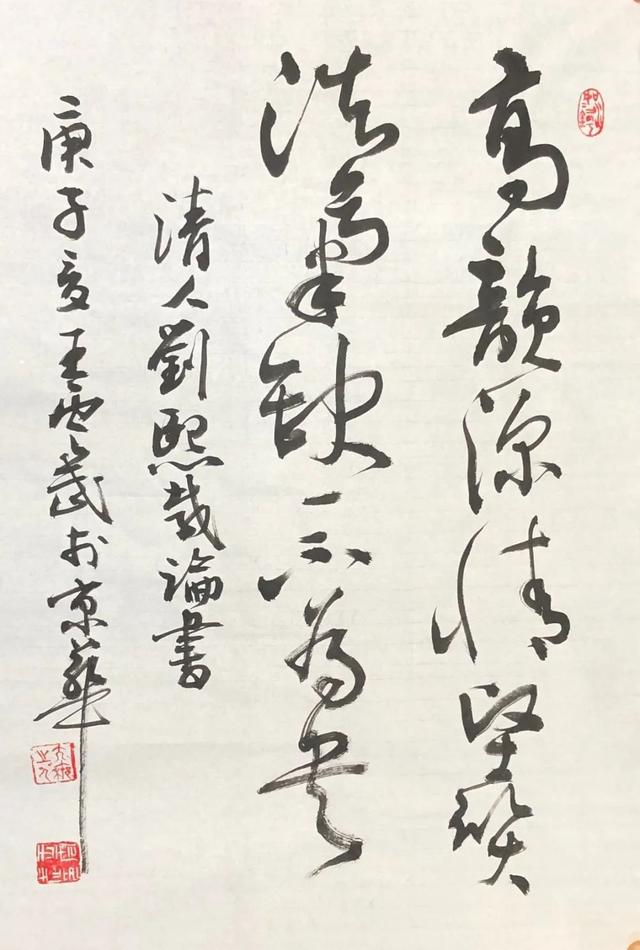 高韻深情堅質
浩氣缺一不為書
清人劉熙載論書
庚子夏王雲於京華